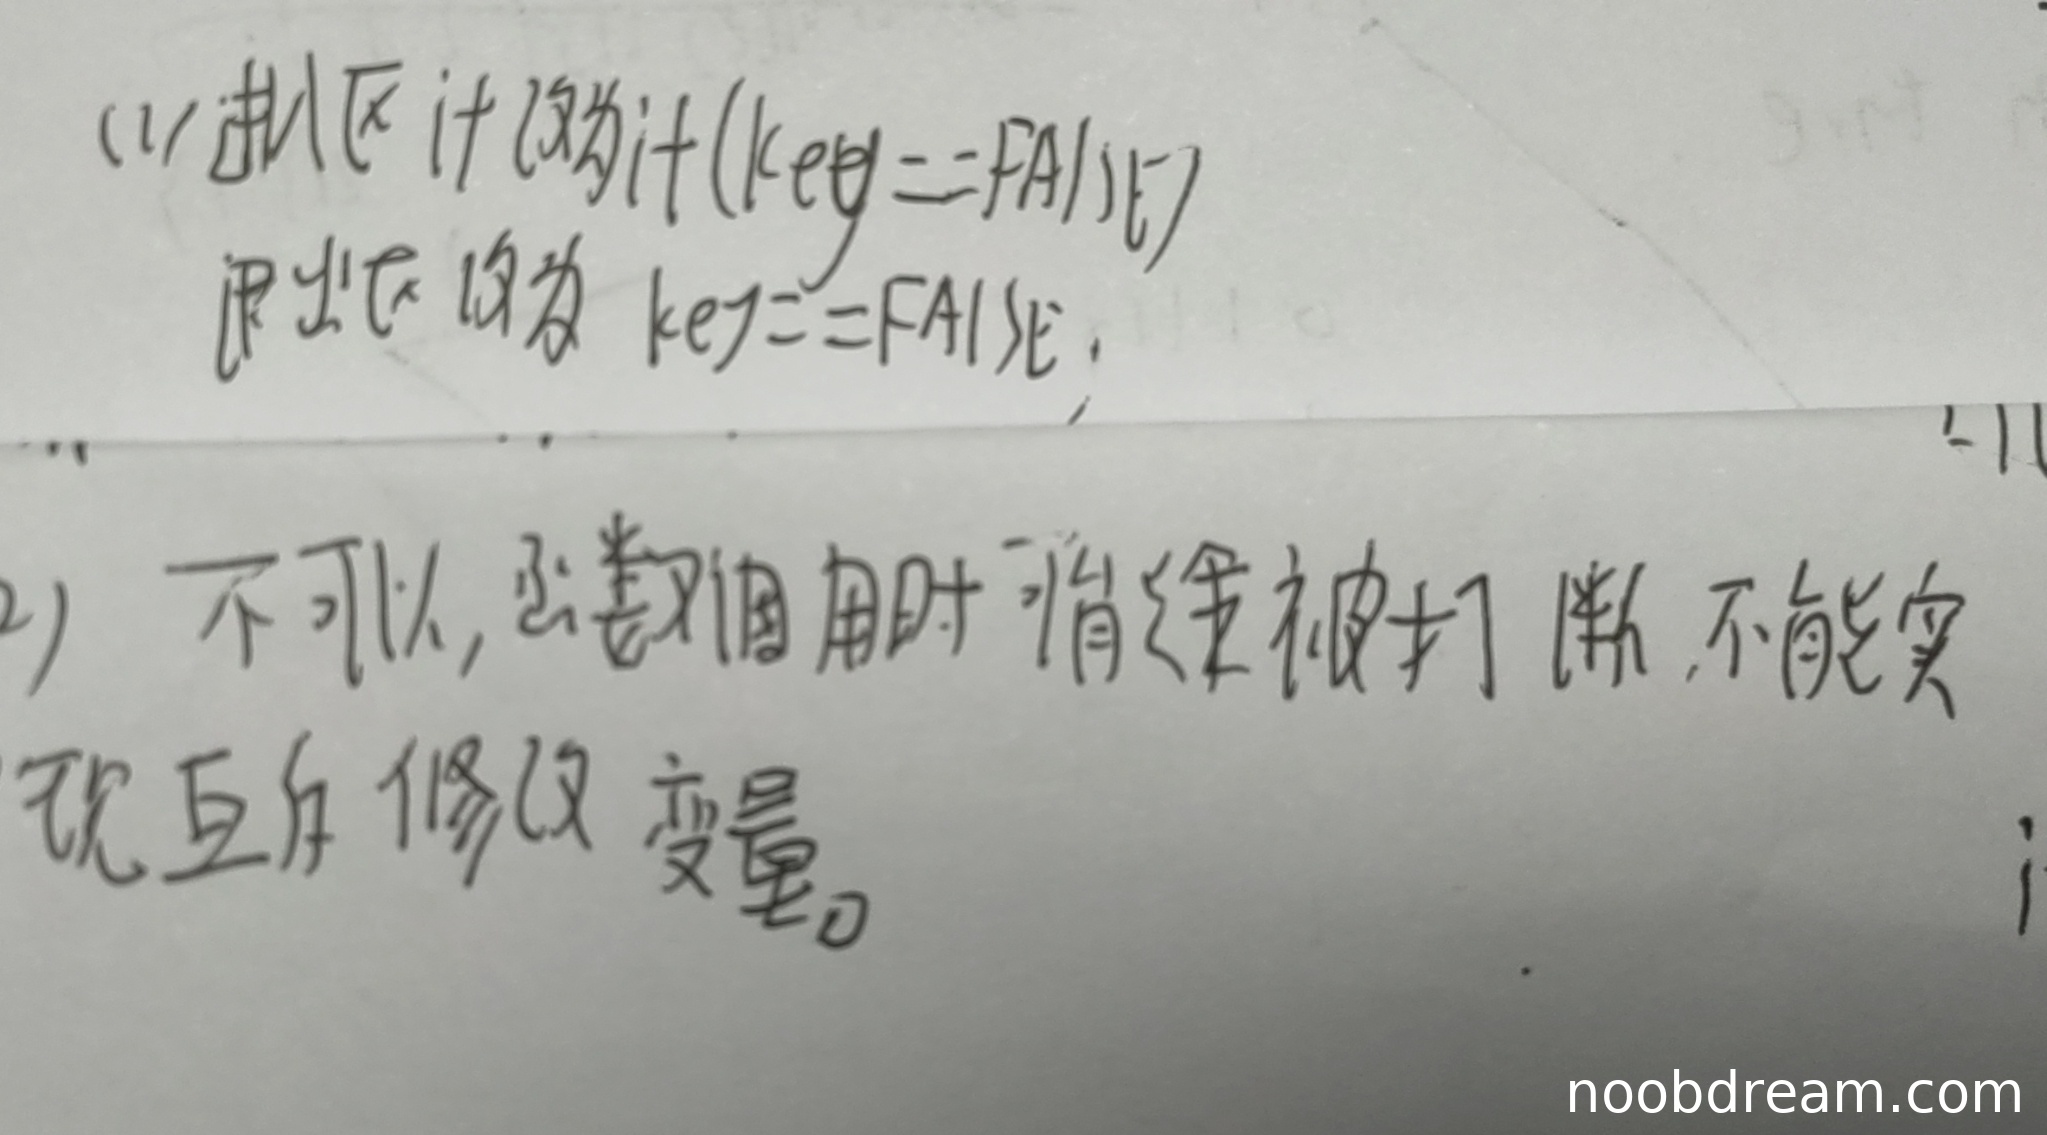 (1) 进入区 if 改为 if(key==FAlSE)
退出区 改为 key==FAlSE;
2) 不可以, 函数调用时可能会被打断,不能实
现互斥修改 变量。
noobdream.com